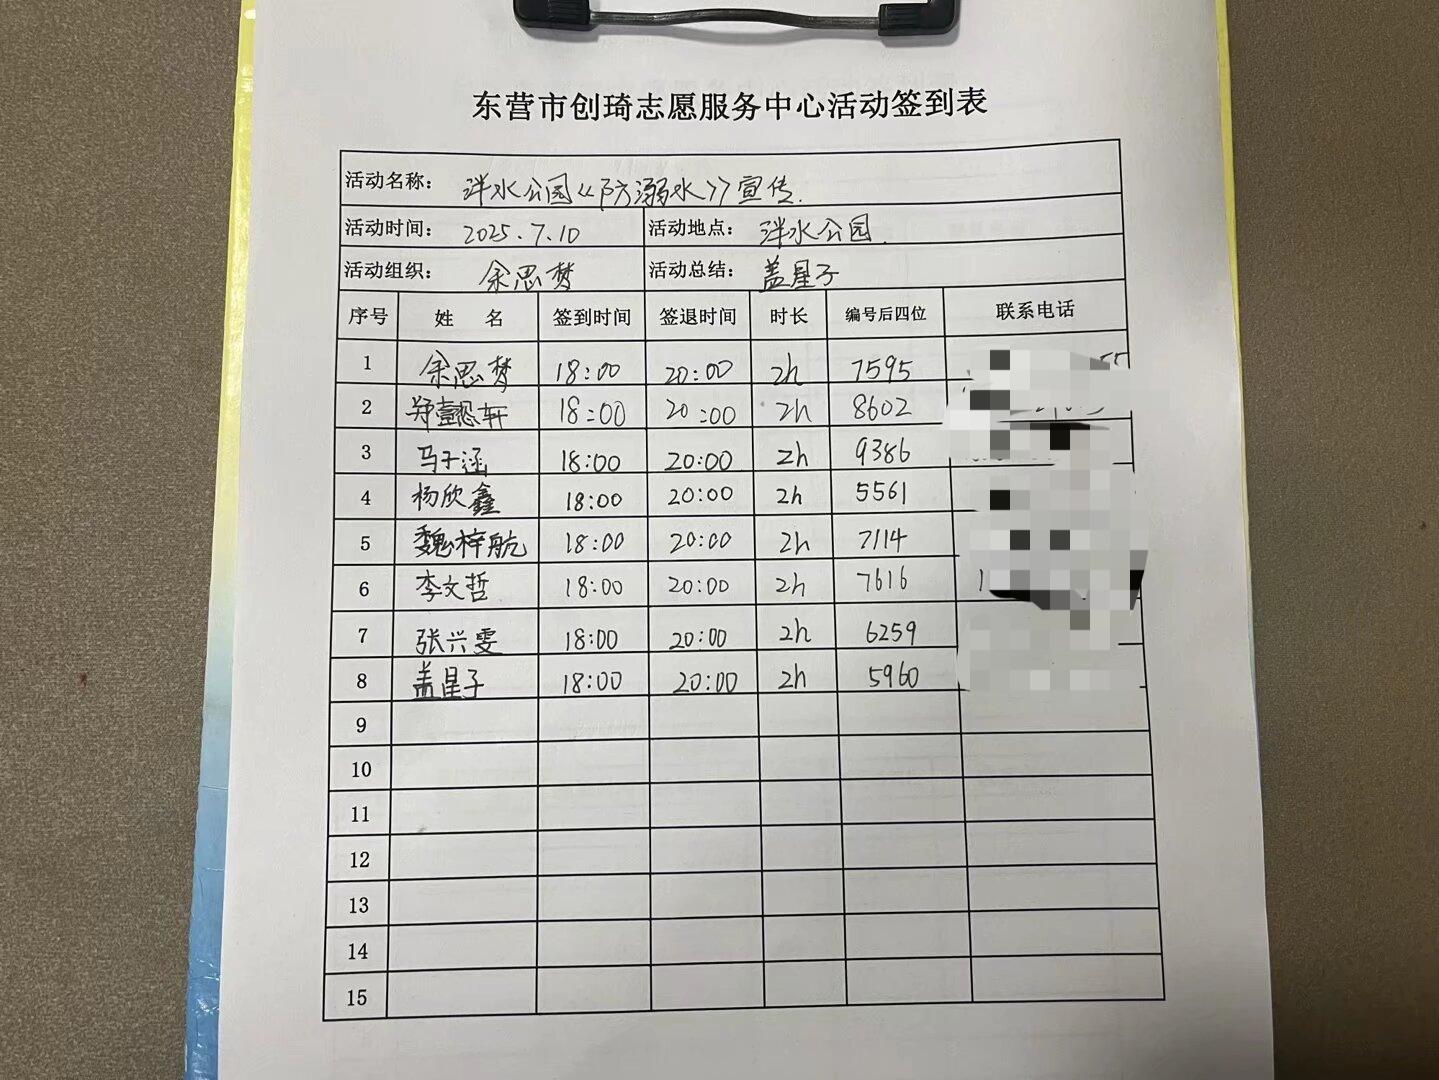 东营市创琦志愿服务中心活动签到表
活动名称： 泮水公园《防溺水》宣传.
活动时间： 2025.7.10 活动地点： 泮水公园.
活动组织： 余思梦 活动总结： 盖星子
序号 姓 名 签到时间 签退时间 时长 编号后四位 联系电话
1 余思梦 18:00 20:00 2h 7595
2 18:00 20:00 2h 8602
3 马子涵 18:00 20:00 2h 9386
4 杨欣鑫 18:00 20:00 2h 5561
5 魏梓航 18:00 20:00 2h 7114
6 李文哲 18:00 20:00 2h 7616
7 张兴雯 18:00 20:00 2h 6259
8 盖星子 18:00 20:00 2h 5960
9
10
11
12
13
14
15